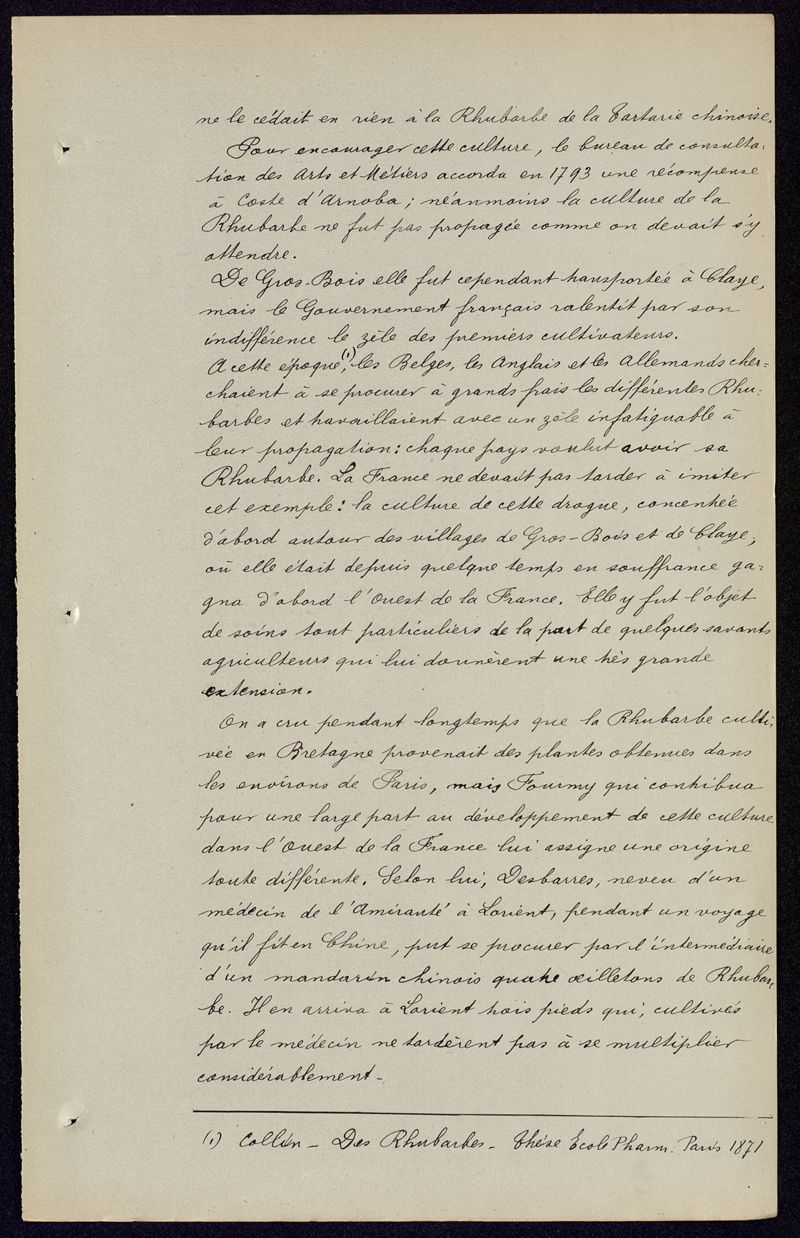 ne le cédait en rien à la Rhubarbe de la Tartarie chinoise.
Pour encourager cette culture, le bureau de consulta=
tion des Arts et Métiers accorda en 1793 une récompense
à Coste d'Arnoba ; néanmoins la culture de la
Rhubarbe ne fut pas propagée comme on devait s'y
attendre.
De Gros-Bois elle fut cependant transportée à Claye,
mais le Gouvernement français ralentit par son
indifférence le zèle des premiers cultivateurs.
A cette époque,(1) les Belges, les Anglais et les Allemands cher=
chaient à se procurer à grands frais les différentes Rhu=
barbes et travaillaient avec un zèle infatiguable à
leur propagation : chaque pays voulut avoir sa
Rhubarbe. La France ne devait pas tarder à imiter
cet exemple : la culture de cette drogue, concentrée
d'abord autour des villages de Gros-Bois et de Claye,
où elle était depuis quelque temps en souffrance ga=
gna d'abord l'Ouest de la France. Elle y fut l'objet
de soins tout particuliers de la part de quelques savants
agriculteurs qui lui donnèrent une très grande
extension.
On a cru pendant longtemps que la Rhubarbe culti=
vée en Bretagne provenait des plantes obtenues dans
les environs de Paris, mais Fourmy qui contribua
pour une large part au développement de cette culture
dans l'Ouest de la France lui assigne une origine
toute différente. Selon lui, Desbarres, neveu d'un
médecin de l'Amirauté à Lorient, pendant un voyage
qu'il fit en Chine, put se procurer par l'intermédiaire
d'un mandarin chinois quatre œilletons de Rhubar=
be. Il en arriva à Lorient trois pieds qui, cultivés
par le médecin ne tardèrent pas à se multiplier
considérablement -
(1) Collin - Des Rhubarbes - Thèse Ecole Pharm. Paris 1871